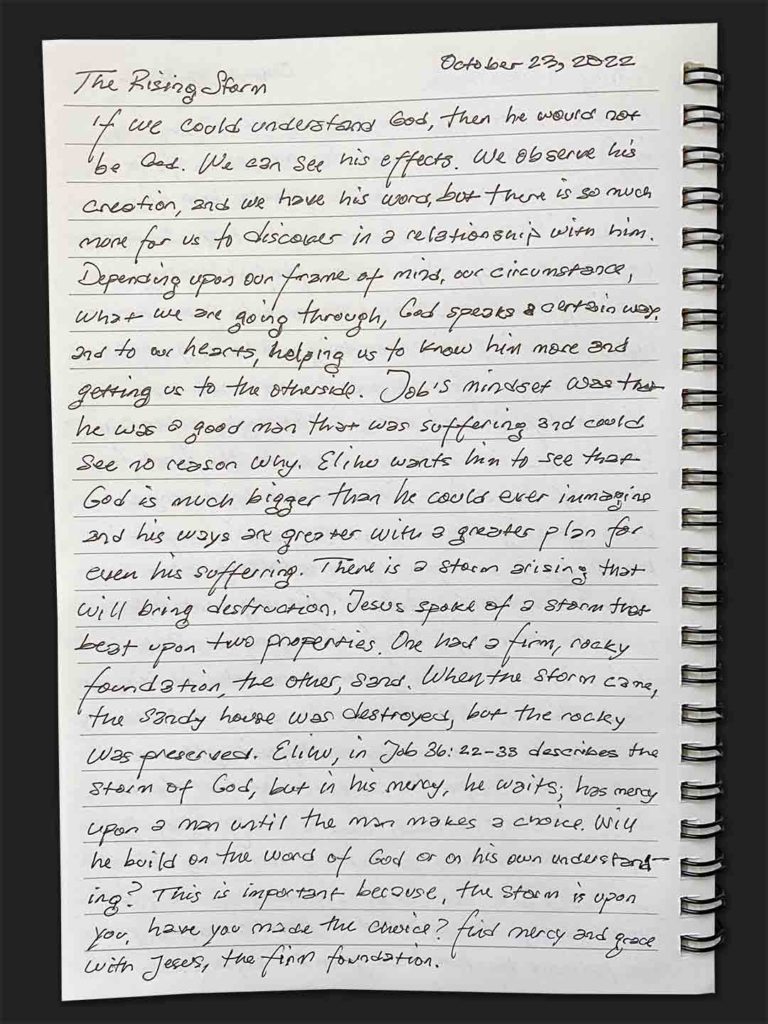 October 23, 2022
The Rising Storm
If we could understand God, then he would not
be God. We can see his effects. We observe his
creation, and we have his word, but there is so much
more for us to discover in a relationship with him.
Depending upon our frame of mind, our circumstance,
what we are going through, God speaks a certain way.
and to our hearts, helping us to know him more and
getting us to the otherside. Job's mindset was that
he was a good man that was suffering and could
see no reason why. Elihu wants him to see that
God is much bigger than he could ever immagine
and his ways are greater with a greater plan for
even his sufferring. There is a storm arising that
will bring destruction. Jesus spoke of a storm that
beat upon two properties. One had a firm, rocky
foundation, the other, sand. When the storm came,
the sandy house was destroyed, but the rocky
was preserved. Elihu, in Job 36:22-33 describes the
storm of God, but in his mercy, he waits; has mercy
upon a man until the man makes a choice. Will
he build on the word of God or on his own understand-
ing? This is important because, the storm is upon
you, have you made the choice? find mercy and grace
with Jesus, the firm foundation.